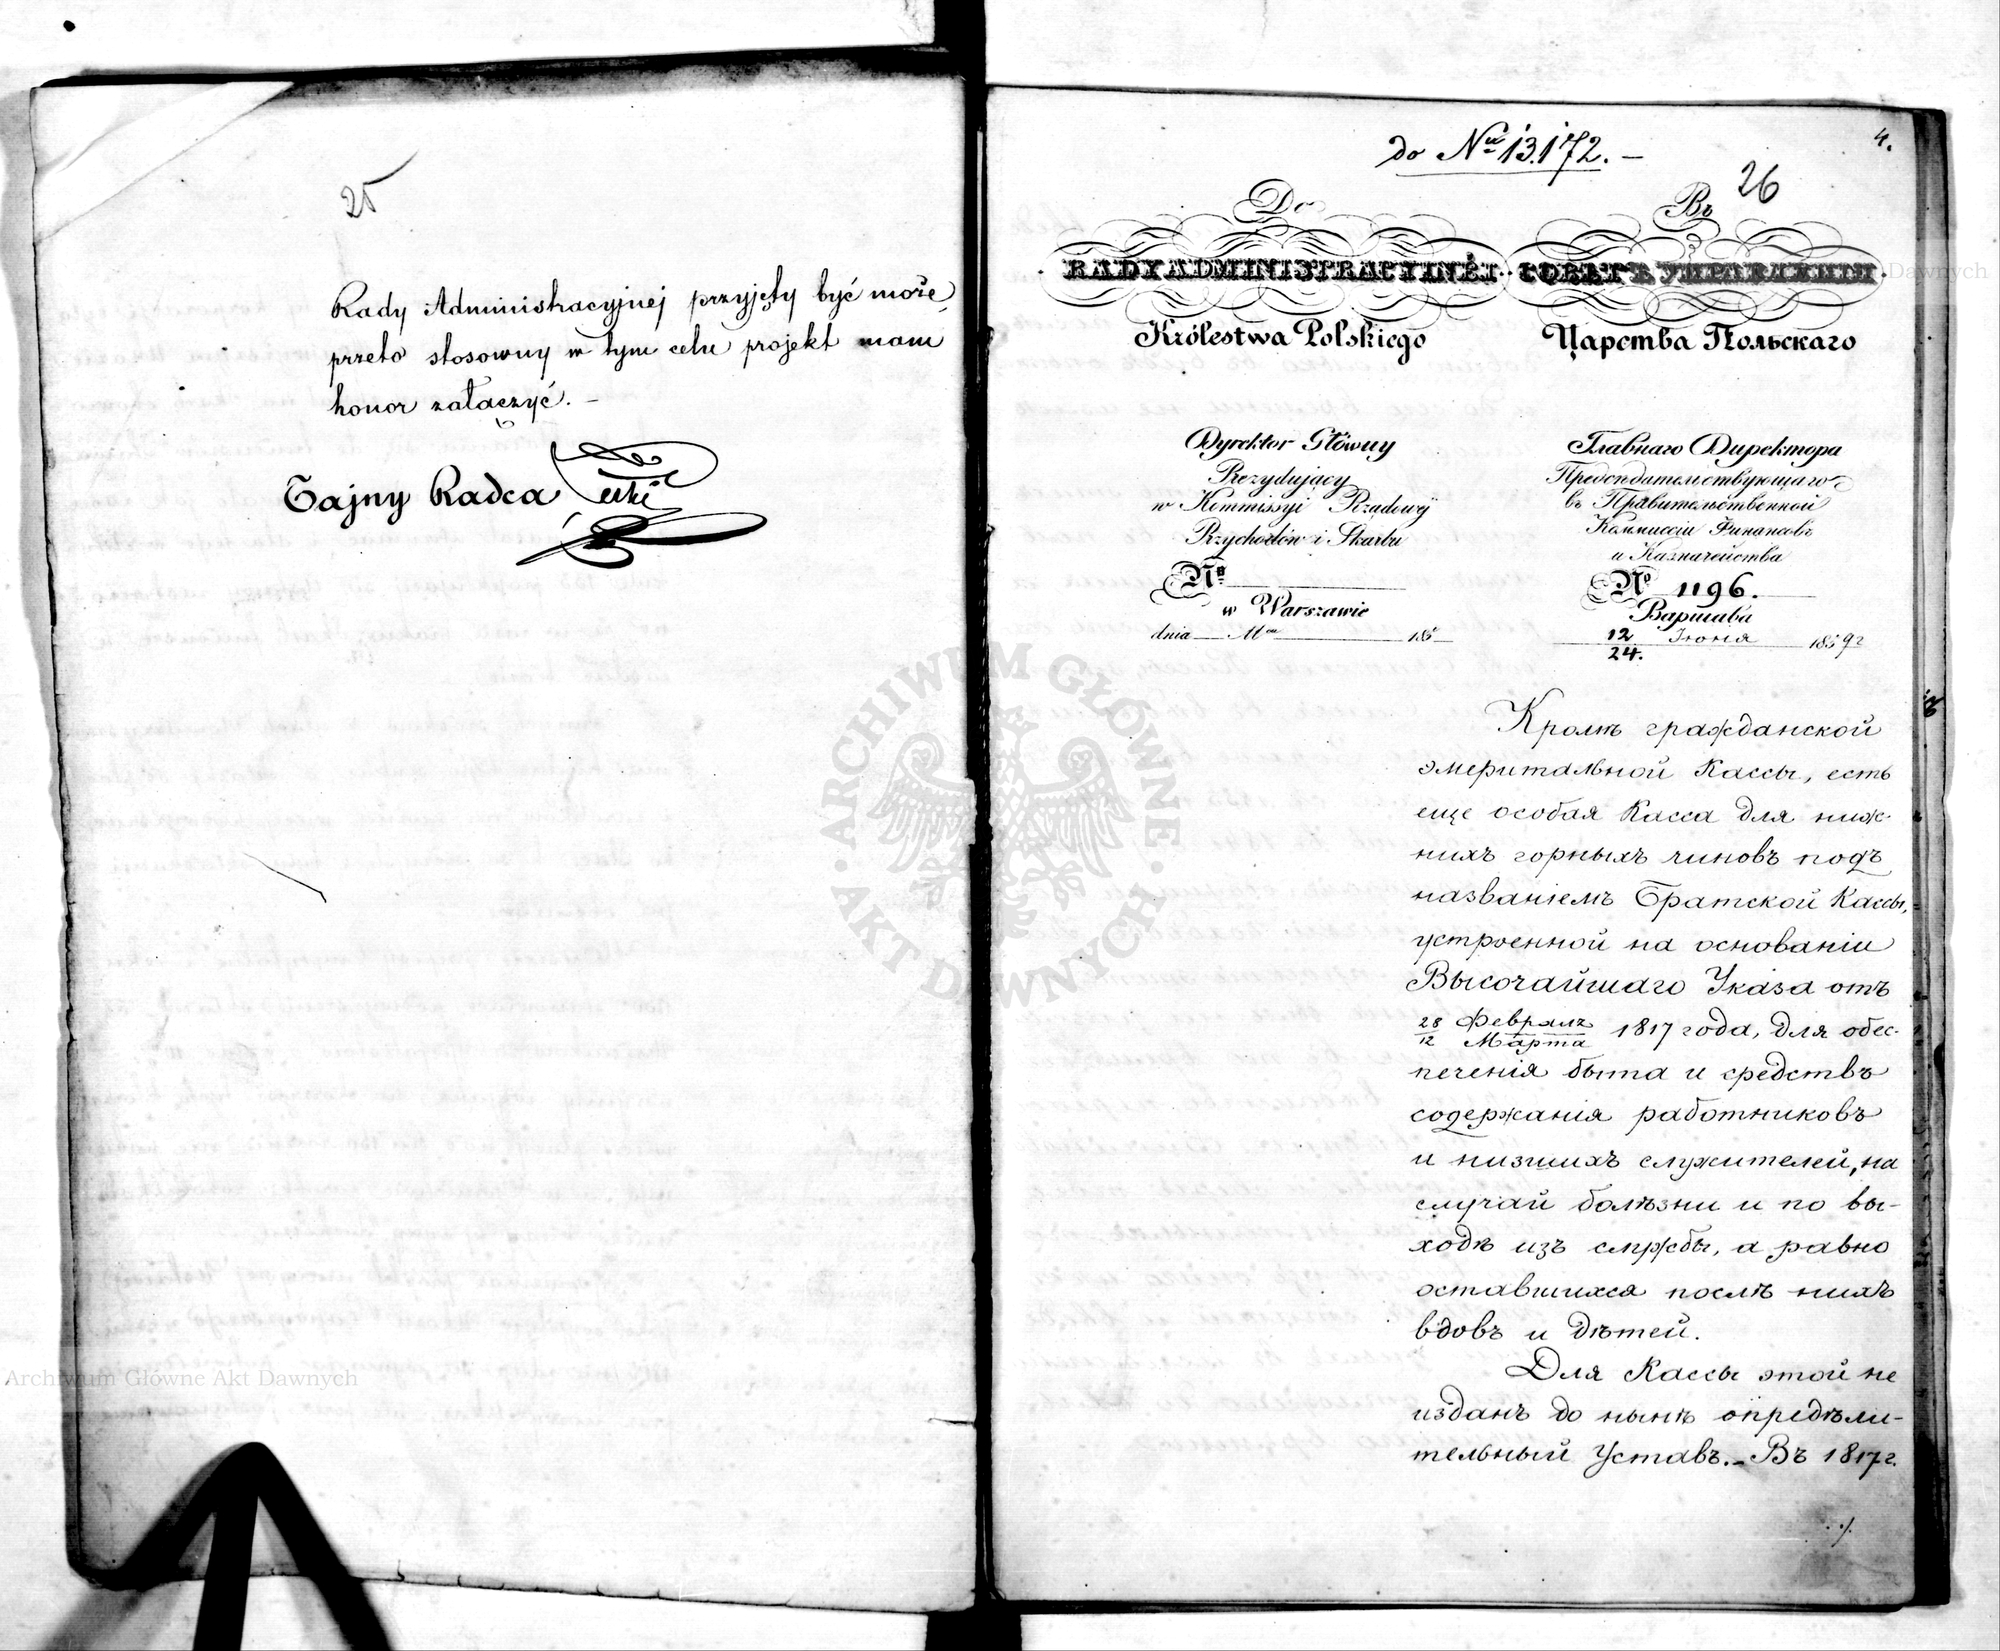 25
Rady Administracyjnej przyjęty być może,
przeto stosowny w tym celu projekt mam
honor załączyć. –
Tajny Radca
do Nru 13.172. –
4.
26
Do
RADY ADMINISTRACYJNÉJ
Królestwa Polskiego
Въ
СОВѢТЪ УПРАВЛЕНІЯ
Царства Польскаго
Dyrektor Główny
Prezydujący
w Kommissyi Rządowéj
Przychodów i Skarbu
No
w Warszawie
dnia Mca 185
Главнаго Директора
Предсѣдательствующаго
въ Правительственной
Коммиссіи Финансовъ
и Казначейства
No 1196.
Варшава
12/24. Іюня 1859 г
Кромѣ гражданской
эмеритальной Кассы, есть
еще особая Касса для ниж-
нихъ горныхъ чиновъ подъ
названіемъ Братской Кассы,
устроенной на основаніи
Высочайшаго Указа отъ
28 Февраля/12 Марта 1817 года, для обес-
печенія быта и средствъ
содержанія работниковъ
и низшихъ служителей, на
случай болѣзни и по вы-
ходѣ изъ службы, а равно
оставшихся послѣ нихъ
вдовъ и дѣтей.
Для Кассы этой не
изданъ до нынѣ опредѣли-
тельный Уставъ. – Въ 1817 г.
./.
ARCHIWUM GŁÓWNE AKT DAWNYCH
Archiwum Główne Akt Dawnych
Dawnych